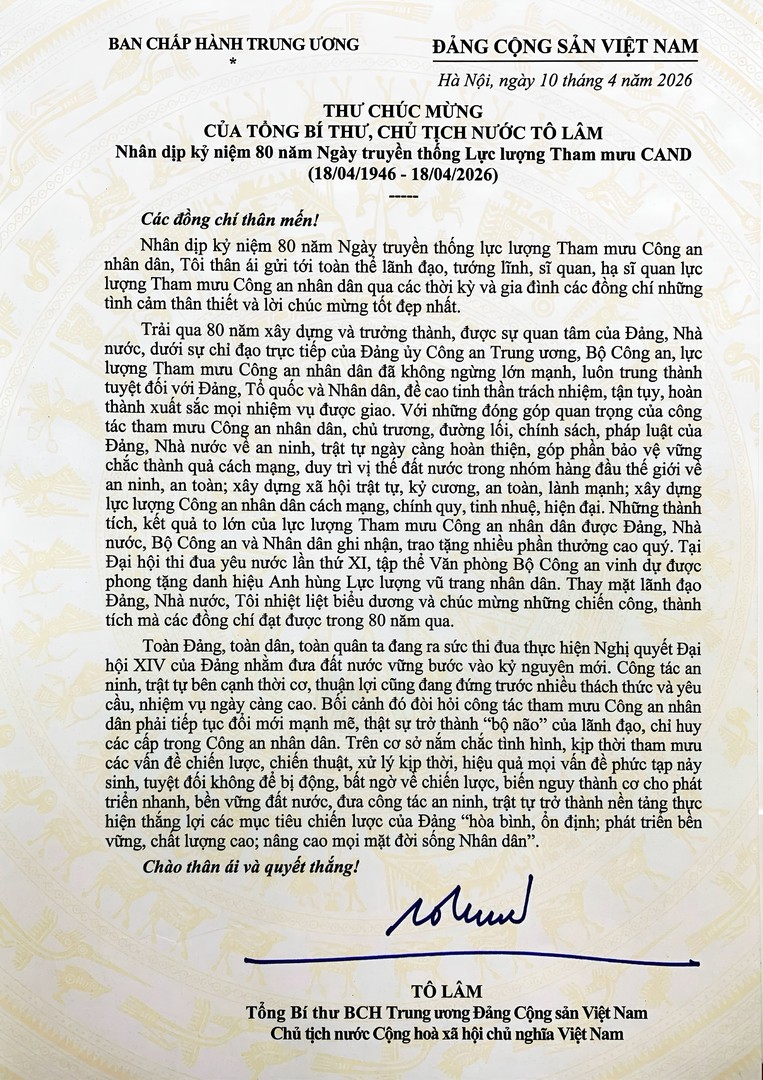 BAN CHẤP HÀNH TRUNG ƯƠNG
*
ĐẢNG CỘNG SẢN VIỆT NAM
Hà Nội, ngày 10 tháng 4 năm 2026
THƯ CHÚC MỪNG
CỦA TỔNG BÍ THƯ, CHỦ TỊCH NƯỚC TÔ LÂM
Nhân dịp kỷ niệm 80 năm Ngày truyền thống Lực lượng Tham mưu CAND
(18/04/1946 - 18/04/2026)
-----
Các đồng chí thân mến!
Nhân dịp kỷ niệm 80 năm Ngày truyền thống lực lượng Tham mưu Công an
nhân dân, Tôi thân ái gửi tới toàn thể lãnh đạo, tướng lĩnh, sĩ quan, hạ sĩ quan lực
lượng Tham mưu Công an nhân dân qua các thời kỳ và gia đình các đồng chí những
tình cảm thân thiết và lời chúc mừng tốt đẹp nhất.
Trải qua 80 năm xây dựng và trưởng thành, được sự quan tâm của Đảng, Nhà
nước, dưới sự chỉ đạo trực tiếp của Đảng ủy Công an Trung ương, Bộ Công an, lực
lượng Tham mưu Công an nhân dân đã không ngừng lớn mạnh, luôn trung thành
tuyệt đối với Đảng, Tổ quốc và Nhân dân, đề cao tinh thần trách nhiệm, tận tụy, hoàn
thành xuất sắc mọi nhiệm vụ được giao. Với những đóng góp quan trọng của công
tác tham mưu Công an nhân dân, chủ trương, đường lối, chính sách, pháp luật của
Đảng, Nhà nước về an ninh, trật tự ngày càng hoàn thiện, góp phần bảo vệ vững
chắc thành quả cách mạng, duy trì vị thế đất nước trong nhóm hàng đầu thế giới về
an ninh, an toàn; xây dựng xã hội trật tự, kỷ cương, an toàn, lành mạnh; xây dựng
lực lượng Công an nhân dân cách mạng, chính quy, tinh nhuệ, hiện đại. Những thành
tích, kết quả to lớn của lực lượng Tham mưu Công an nhân dân được Đảng, Nhà
nước, Bộ Công an và Nhân dân ghi nhận, trao tặng nhiều phần thưởng cao quý. Tại
Đại hội thi đua yêu nước lần thứ XI, tập thể Văn phòng Bộ Công an vinh dự được
phong tặng danh hiệu Anh hùng Lực lượng vũ trang nhân dân. Thay mặt lãnh đạo
Đảng, Nhà nước, Tôi nhiệt liệt biểu dương và chúc mừng những chiến công, thành
tích mà các đồng chí đạt được trong 80 năm qua.
Toàn Đảng, toàn dân, toàn quân ta đang ra sức thi đua thực hiện Nghị quyết Đại
hội XIV của Đảng nhằm đưa đất nước vững bước vào kỷ nguyên mới. Công tác an
ninh, trật tự bên cạnh thời cơ, thuận lợi cũng đang đứng trước nhiều thách thức và yêu
cầu, nhiệm vụ ngày càng cao. Bối cảnh đó đòi hỏi công tác tham mưu Công an nhân
dân phải tiếp tục đổi mới mạnh mẽ, thật sự trở thành “bộ não” của lãnh đạo, chỉ huy
các cấp trong Công an nhân dân. Trên cơ sở nắm chắc tình hình, kịp thời tham mưu
các vấn đề chiến lược, chiến thuật, xử lý kịp thời, hiệu quả mọi vấn đề phức tạp nảy
sinh, tuyệt đối không để bị động, bất ngờ về chiến lược, biến nguy thành cơ cho phát
triển nhanh, bền vững đất nước, đưa công tác an ninh, trật tự trở thành nền tảng thực
hiện thắng lợi các mục tiêu chiến lược của Đảng “hòa bình, ổn định; phát triển bền
vững, chất lượng cao; nâng cao mọi mặt đời sống Nhân dân”.
Chào thân ái và quyết thắng!
TÔ LÂM
Tổng Bí thư BCH Trung ương Đảng Cộng sản Việt Nam
Chủ tịch nước Cộng hoà xã hội chủ nghĩa Việt Nam